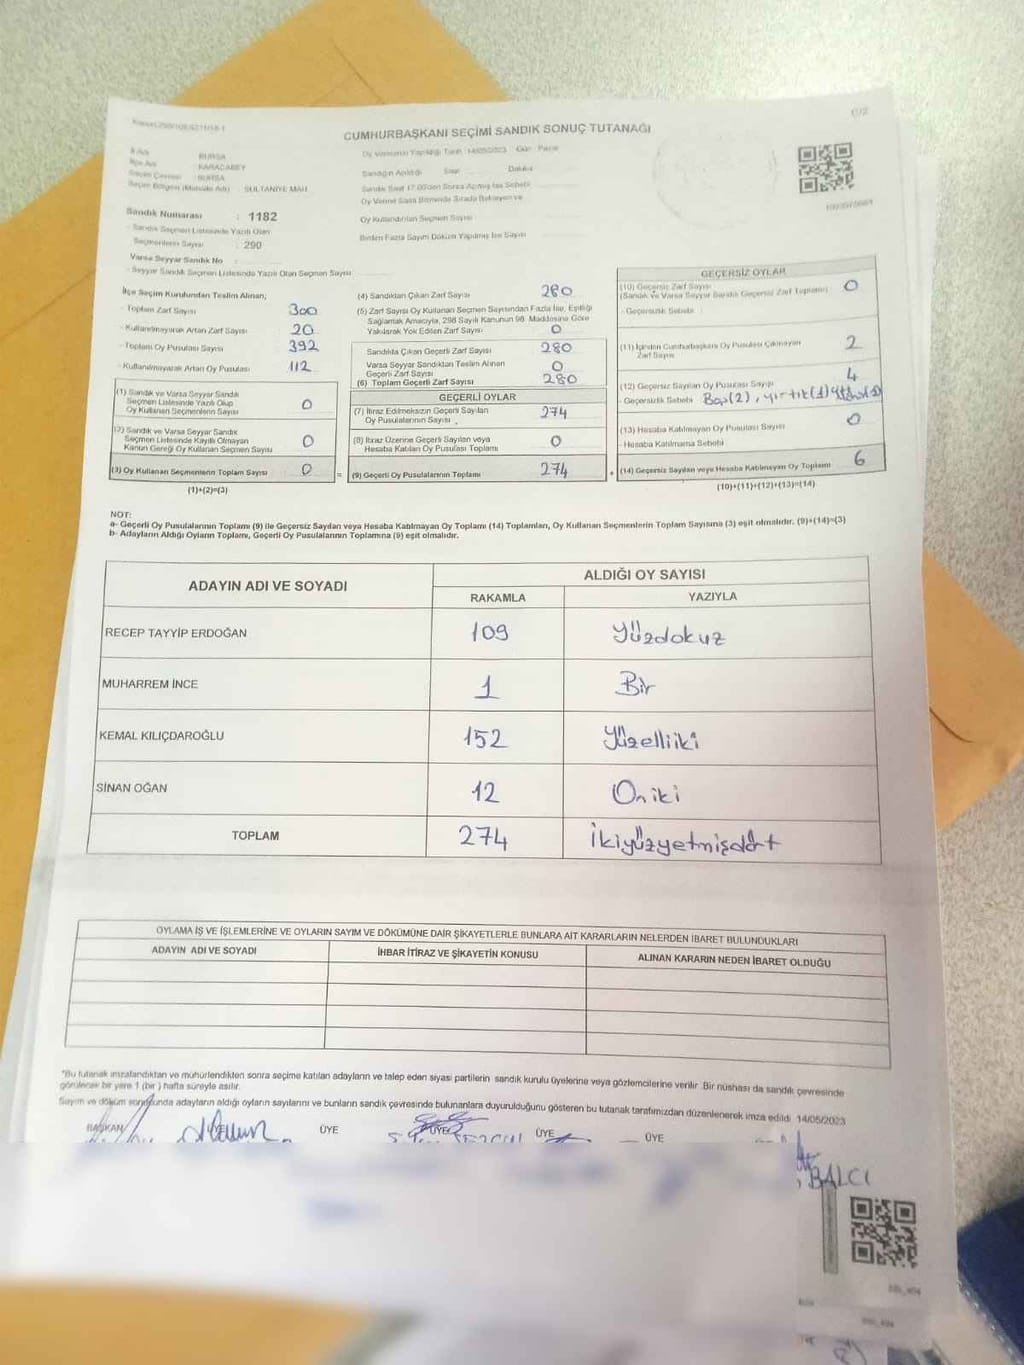 CUMHURBAŞKANI SEÇİMİ SANDIK SONUÇ TUTANAĞI
İl Adı BURSA
İlçe Adı KARACABEY
Seçim Çevresi BURSA
Seçim Bölgesi (Muhtarlık Adı) SULTANİYE MAH.
Oy Vermenin Yapıldığı Tarih :14/05/2023 Gün : Pazar
Sandığın Açıldığı Saat Dakika
Sandık Saat 17.00'den Sonra Açılmış İse Sebebi
Oy Verme Saati Bitiminde Sırada Bekleyen ve
Oy Kullandırılan Seçmen Sayısı
Birden Fazla Sayım Döküm Yapılmış İse Sayısı
Sandık Numarası : 1182
- Sandık Seçmen Listesinde Yazılı Olan
Seçmenlerin Sayısı : 290
Varsa Seyyar Sandık No :
- Seyyar Sandık Seçmen Listesinde Yazılı Olan Seçmen Sayısı
İlçe Seçim Kurulundan Teslim Alınan;
- Toplam Zarf Sayısı 300
- Kullanılmayarak Artan Zarf Sayısı 20
- Toplam Oy Pusulası Sayısı 392
- Kullanılmayarak Artan Oy Pusulası 112
(1) Sandık ve Varsa Seyyar Sandık
Seçmen Listesinde Yazılı Olup
Oy Kullanan Seçmenlerin Sayısı 0
(2) Sandık ve Varsa Seyyar Sandık
Seçmen Listesinde Kayıtlı Olmayan
Kanun Gereği Oy Kullanan Seçmen Sayısı 0
(3) Oy Kullanan Seçmenlerin Toplam Sayısı 0
(1)+(2)=(3)
(4) Sandıktan Çıkan Zarf Sayısı 280
(5) Zarf Sayısı Oy Kullanan Seçmen Sayısından Fazla İse, Eşitliği
Sağlamak Amacıyla, 298 Sayılı Kanunun 98. Maddesine Göre
Yakılarak Yok Edilen Zarf Sayısı 0
Sandıkta Çıkan Geçerli Zarf Sayısı 280
Varsa Seyyar Sandıktan Teslim Alınan
Geçerli Zarf Sayısı 0
(6) Toplam Geçerli Zarf Sayısı 280
GEÇERLİ OYLAR
(7) İtiraz Edilmeksizin Geçerli Sayılan
Oy Pusulalarının Sayısı 274
(8) İtiraz Üzerine Geçerli Sayılan veya
Hesaba Katılan Oy Pusulaları Toplamı 0
= (9) Geçerli Oy Pusulalarının Toplamı 274
GEÇERSİZ OYLAR
(10) Geçersiz Zarf Sayısı 0
(Sandık ve Varsa Seyyar Sandık Geçersiz Zarf Toplamı)
- Geçersizlik Sebebi :
(11) İçinden Cumhurbaşkanı Oy Pusulası Çıkmayan
Zarf Sayısı 2
(12) Geçersiz Sayılan Oy Pusulası Sayısı 4
- Geçersizlik Sebebi
(13) Hesaba Katılmayan Oy Pusulası Sayısı 0
- Hesaba Katılmama Sebebi
+ (14) Geçersiz Sayılan veya Hesaba Katılmayan Oy Toplamı 6
(10)+(11)+(12)+(13)=(14)
NOT:
a- Geçerli Oy Pusulalarının Toplamı (9) ile Geçersiz Sayılan veya Hesaba Katılmayan Oy Toplamı (14) Toplamları, Oy Kullanan Seçmenlerin Toplam Sayısına (3) eşit olmalıdır. (9)+(14)=(3)
b- Adayların Aldığı Oyların Toplamı, Geçerli Oy Pusulalarının Toplamına (9) eşit olmalıdır.
ADAYIN ADI VE SOYADI
ALDIĞI OY SAYISI
RAKAMLA YAZIYLA
RECEP TAYYİP ERDOĞAN 109 Yüzdokuz
MUHARREM İNCE 1 Bir
KEMAL KILIÇDAROĞLU 152 Yüzelliiki
SİNAN OĞAN 12 Oniki
TOPLAM 274 İkiyüzyetmişdört
OYLAMA İŞ VE İŞLEMLERİNE VE OYLARIN SAYIM VE DÖKÜMÜNE DAİR ŞİKAYETLERLE BUNLARA AİT KARARLARIN NELERDEN İBARET BULUNDUKLARI
ADAYIN ADI VE SOYADI İHBAR İTİRAZ VE ŞİKAYETİN KONUSU ALINAN KARARIN NEDEN İBARET OLDUĞU
*Bu tutanak imzalandıktan ve mühürlendikten sonra seçime katılan adayların ve talep eden siyasi partilerin sandık kurulu üyelerine veya gözlemcilerine verilir. Bir nüshası da sandık çevresinde
görülecek bir yere 1 (bir) hafta süreyle asılır.
Sayım ve döküm sonucunda adayların aldığı oyların sayılarını ve bunların sandık çevresinde bulunanlara duyurulduğunu gösteren bu tutanak tarafımızdan düzenlenerek imza edildi. 14/05/2023
BAŞKAN ÜYE ÜYE ÜYE ÜYE
BALCI